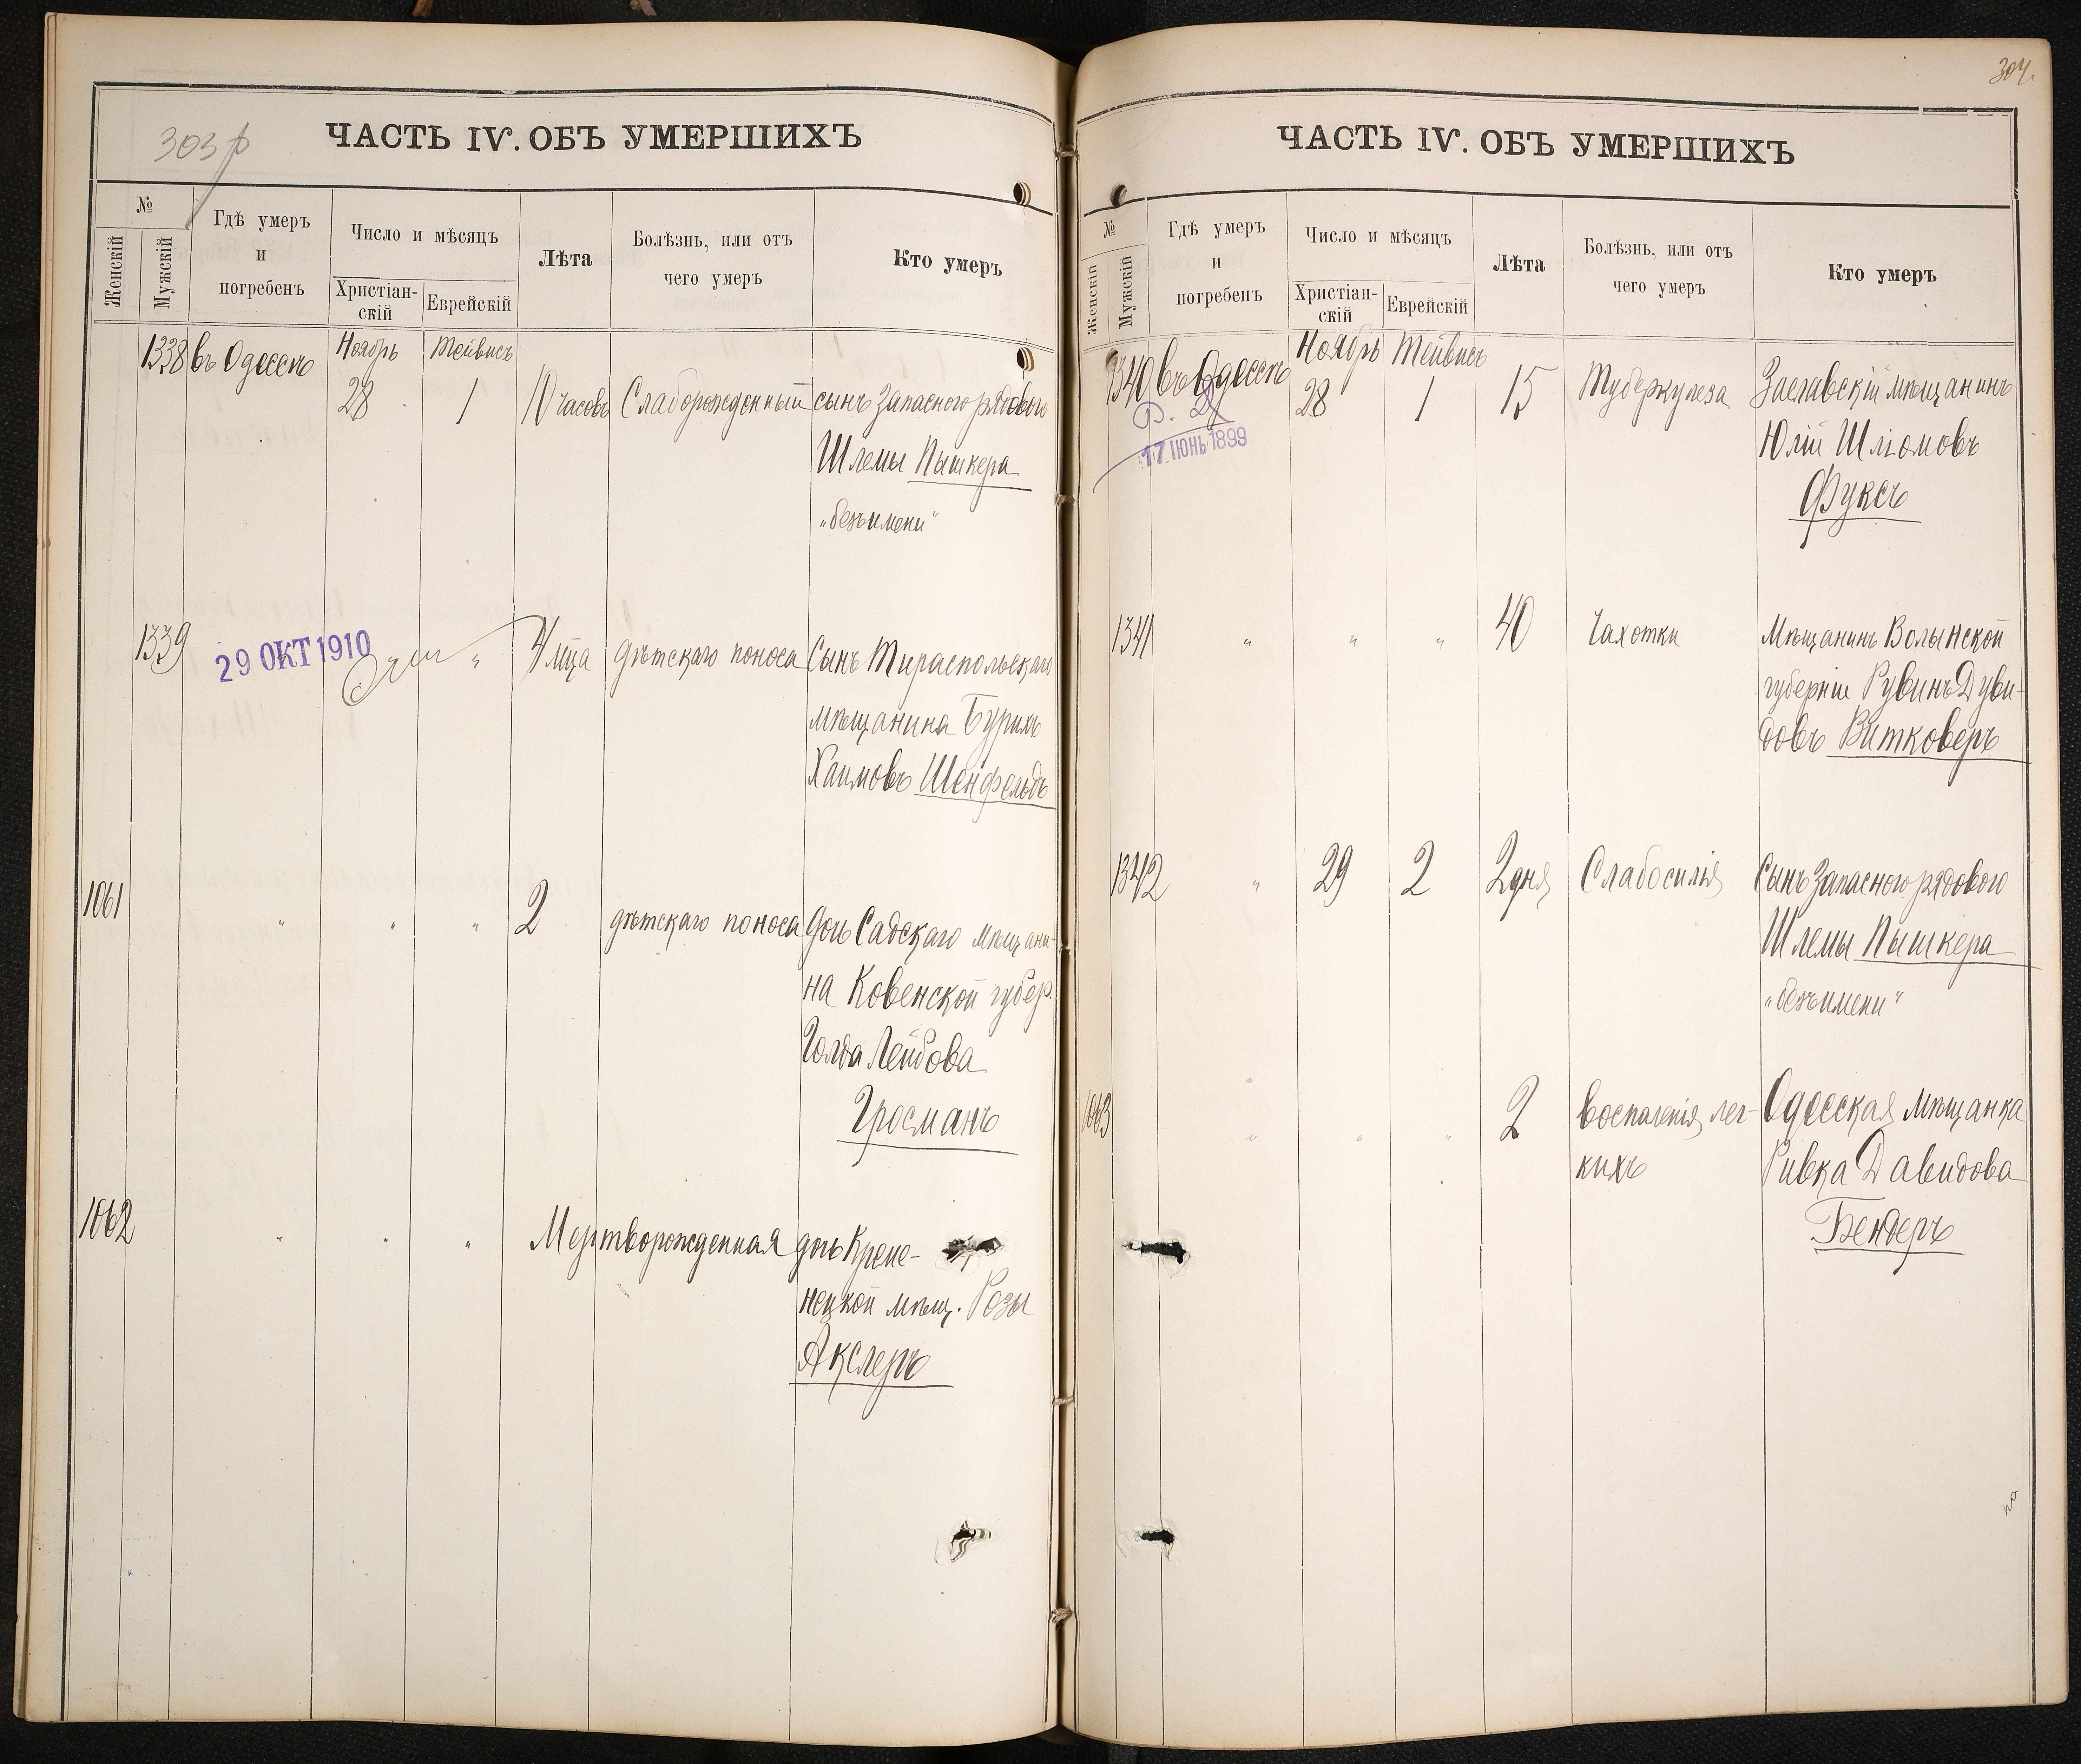 303
ЧАСТЬ IV. ОБЪ УМЕРШИХЪ
№
Женскій
Мужскій
Гдѣ умеръ
и
погребенъ
Число и мѣсяцъ
Христіан-
скій
Еврейскій
Лѣта
Болѣзнь, или отъ
чего умеръ
Кто умеръ
1338 въ Одессѣ Ноябрь Тейвисъ
28 1 10 часовъ Слаборожденный сынъ Запасного рядового
Шлемы Пышкера
„безъимени“
1339 29 ОКТ 1910 „ 4 мца дѣтскаго поноса Сынъ Тираспольскаго
мѣщанина Бурихъ
Хаимовъ Шенфельдъ
1061 „ „ „ 2 дѣтскаго поноса дочь Садскаго мѣщани-
на Ковенской губер.
Голда Лейбова
Гросманъ
1062 „ „ „ Мертворожденная дочь Креме-
нецкой мѣщ. Розы
Акслеръ
304.
ЧАСТЬ IV. ОБЪ УМЕРШИХЪ
№
Женскій
Мужскій
Гдѣ умеръ
и
погребенъ
Число и мѣсяцъ
Христіан-
скій
Еврейскій
Лѣта
Болѣзнь, или отъ
чего умеръ
Кто умеръ
1340 въ Одессѣ Ноябрь Тейвисъ
28 1 15 Туберкулеза Заславскій мѣщанинъ
17 ІЮНЬ 1899
Юлій Шліомовъ
Фуксъ
1341 „ „ „ 40 Чахотки Мѣщанинъ Волынской
губерніи Рувинъ Дуви-
довъ Витковеръ
1342 „ 29 2 2 дня Слабосилія Сынъ Запасного рядового
Шлемы Пышкера
„безъимени“
1063 „ „ „ 2 воспаленія лег- Одесская мѣщанка
кихъ Ривка Давидова
Бендеръ